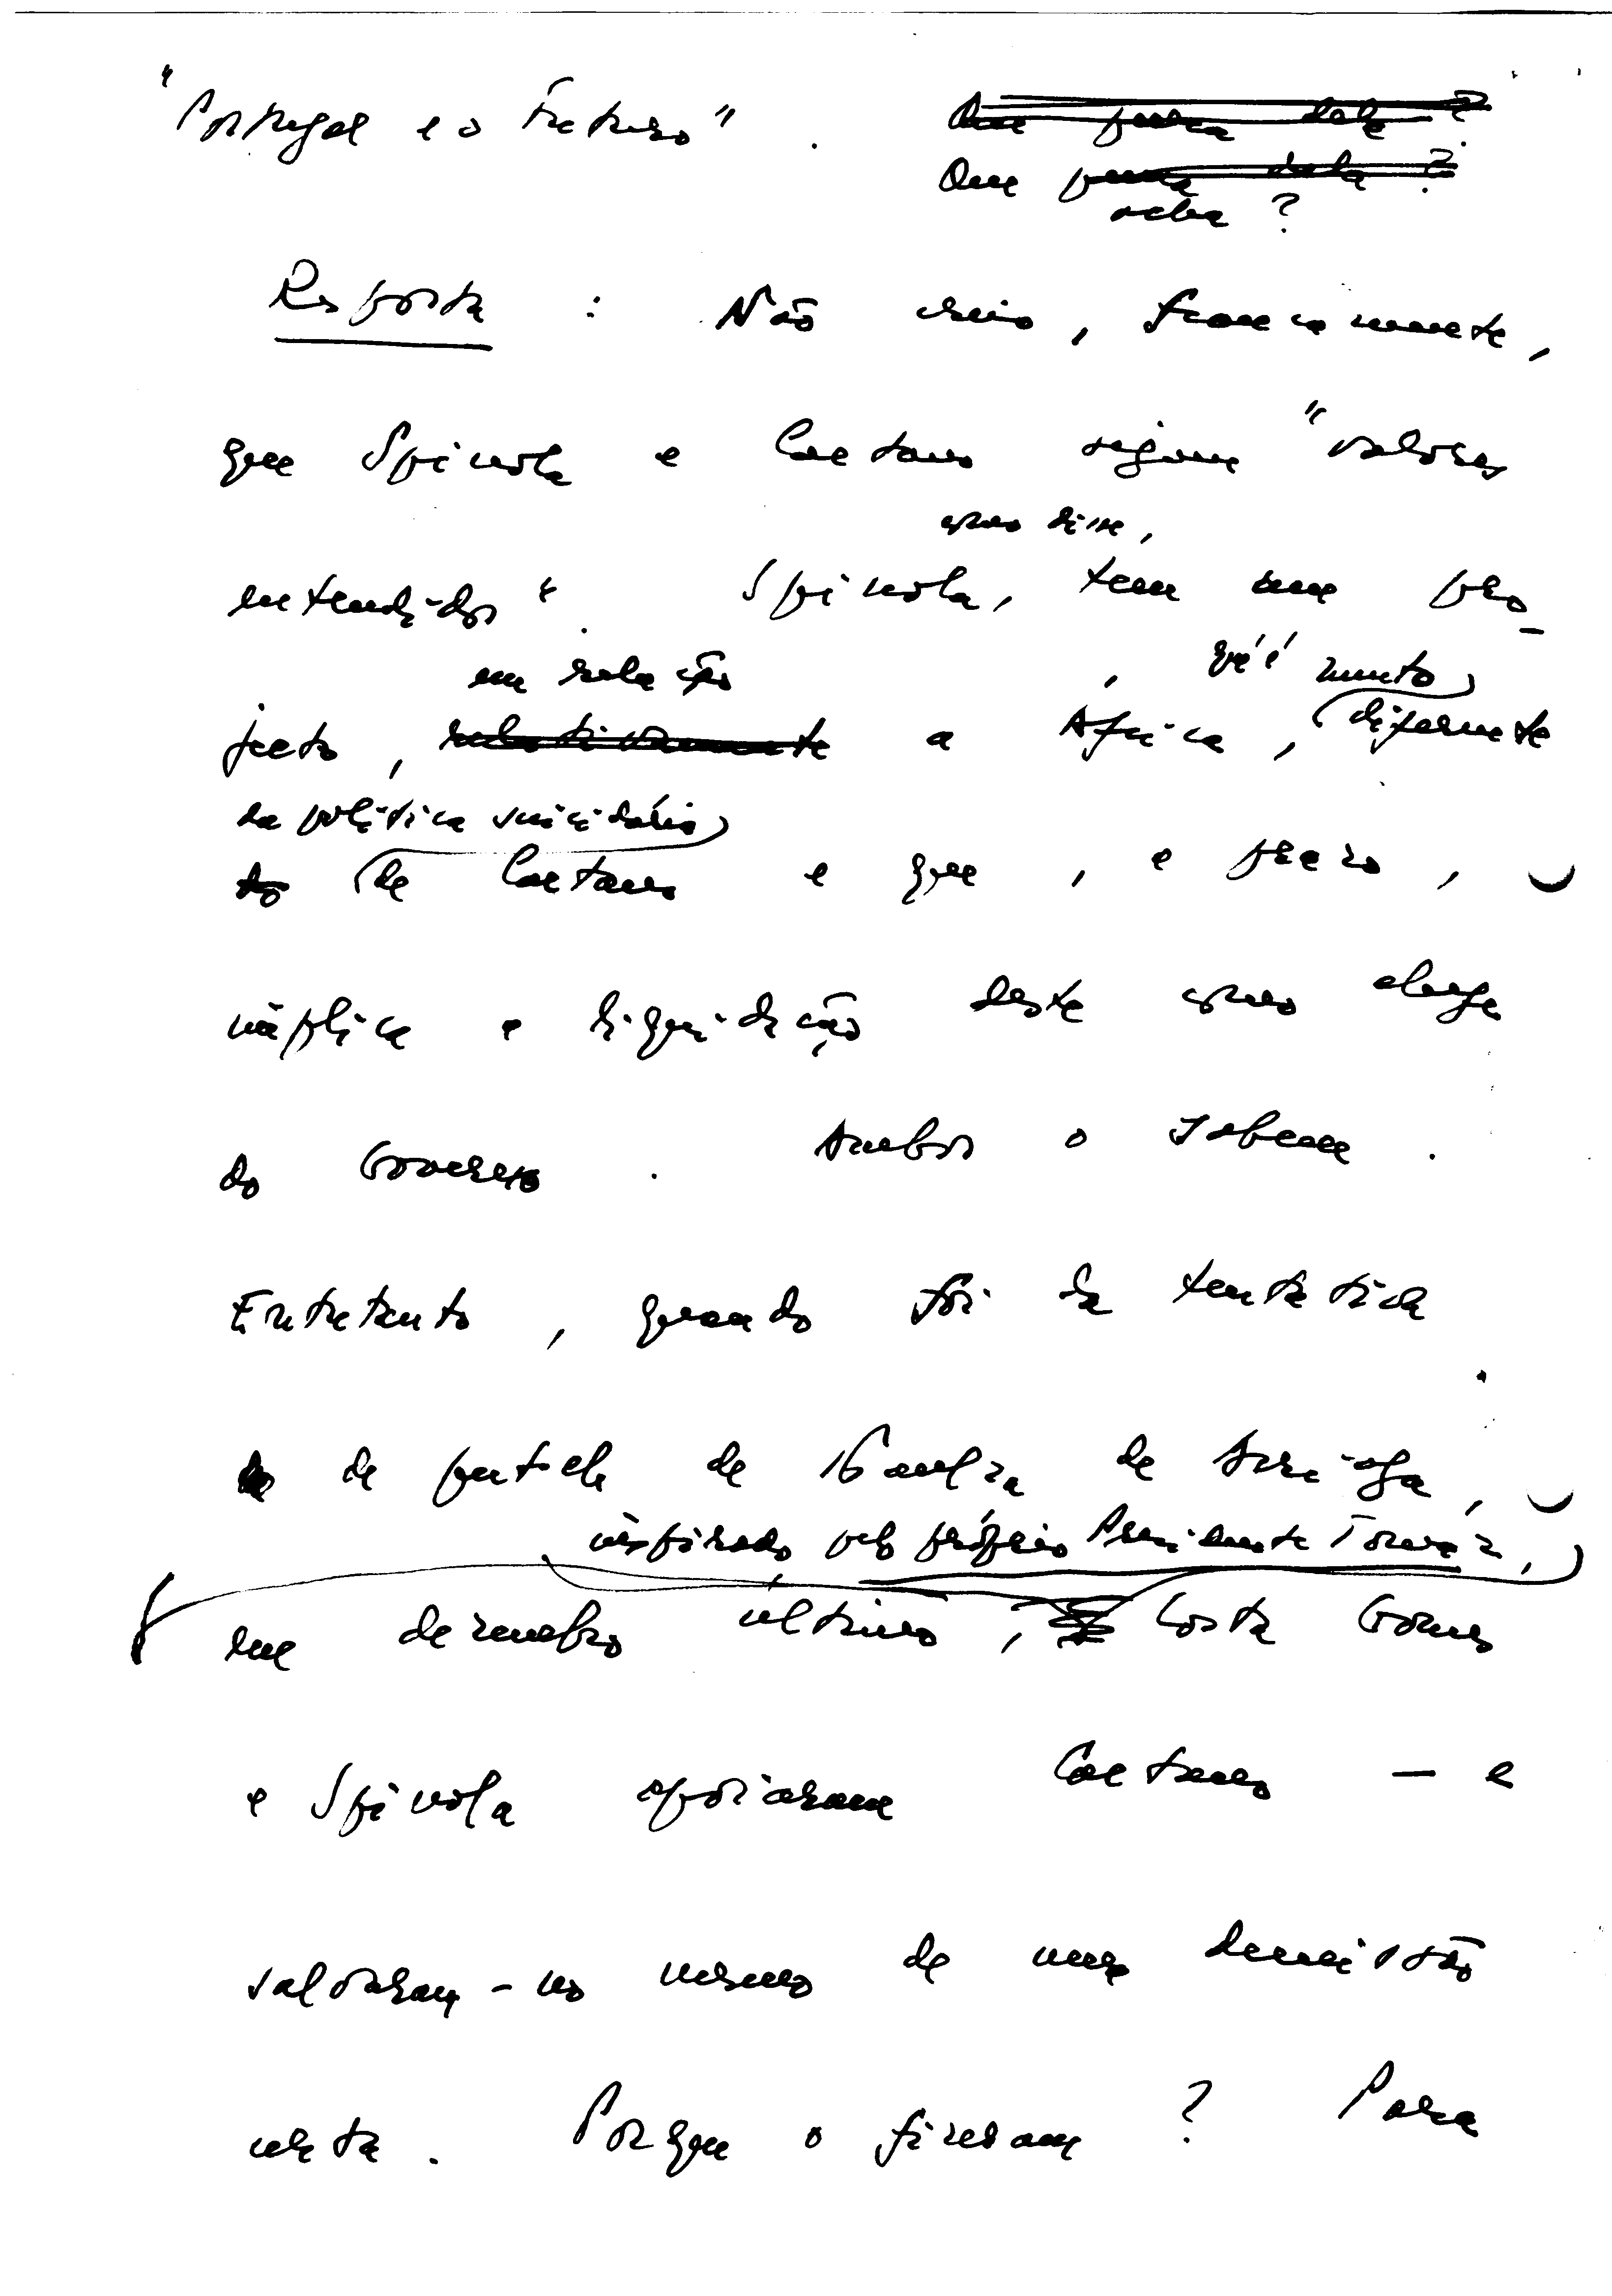 "Portugal e o Futuro". Que pensa dele?
Que pensa dele?
acha?
Resposta: Não creio, francamente,
que Spínola e Caetano sejam "valores
como disse,
entendidos". Spínola, tem um pro-
em relação , que é muito
jecto, relativamente a Africa, diferente
da política suicidária
do de Caetano e que, a prazo,
implica a liquidação deste como chefe
do Governo. Ambos o sabem.
Entretanto, quando foi da tentativa
de putch de Kaulza de Arriaga,
inspirado pelo próprio Presidente Tomáz,
em dezembro último, Costa Gomes
e Spínola apoiaram Caetano - e
salvaram-no mesmo de uma demissão
certa. Porque o fizeram? Para